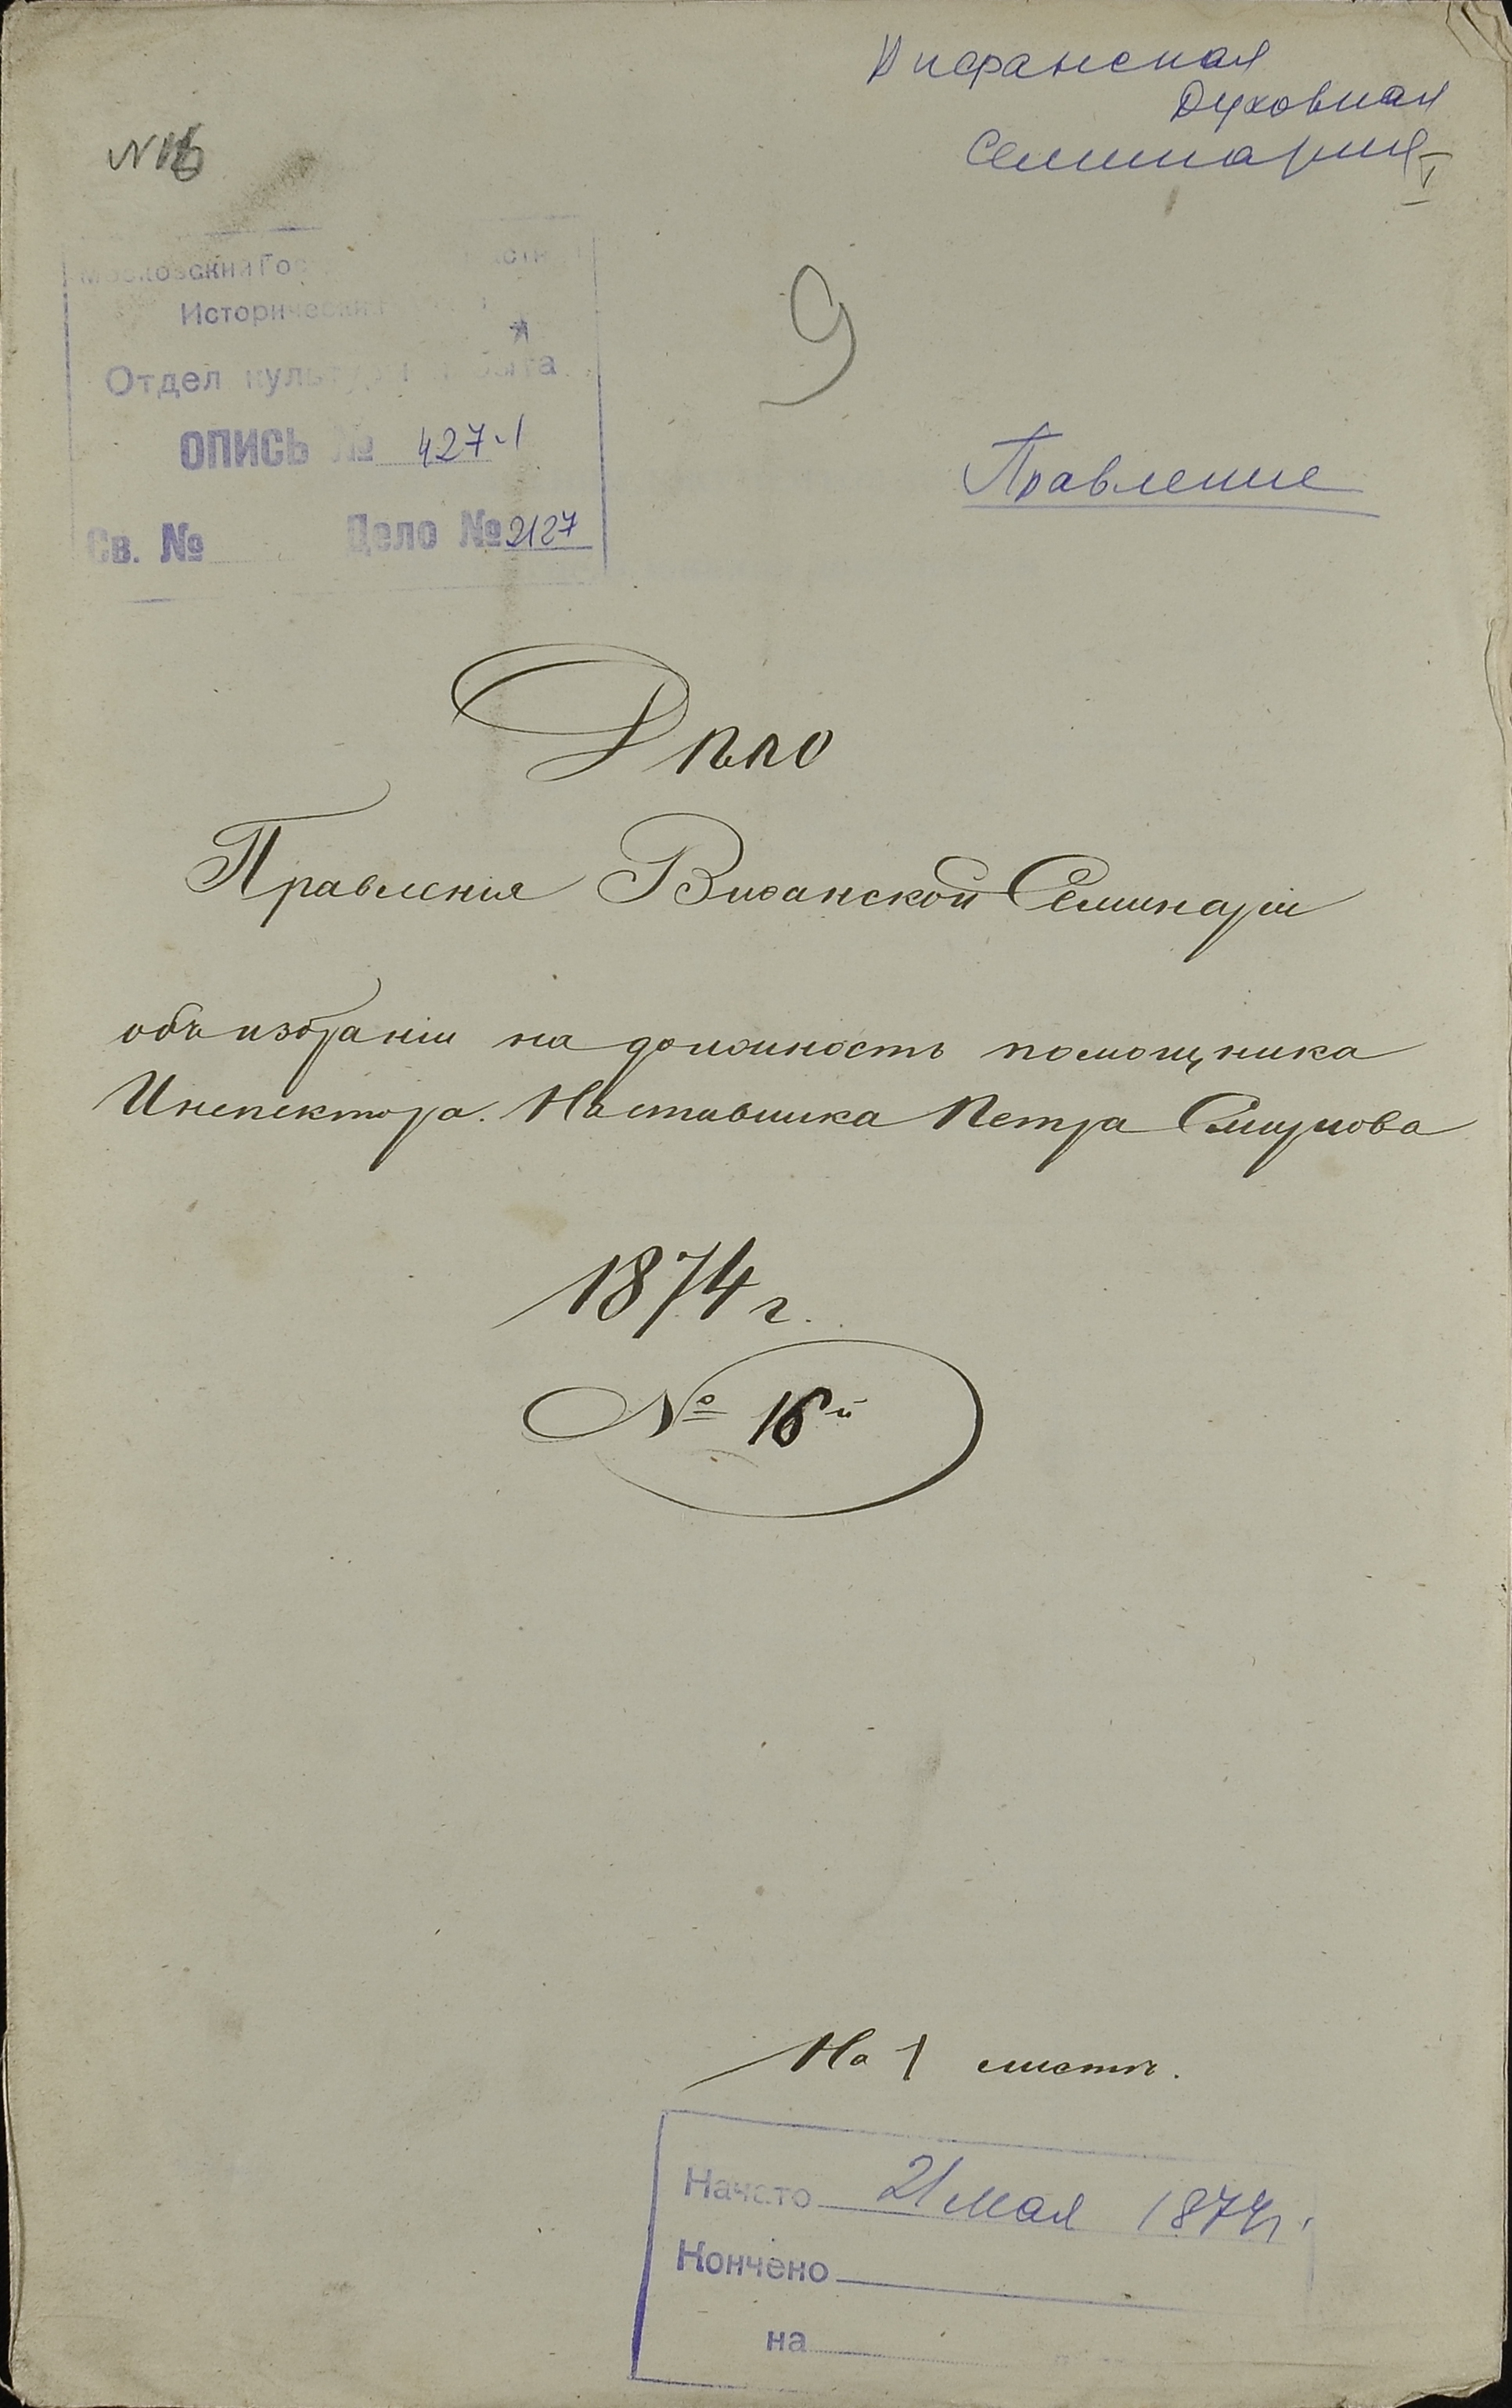 Вифанская
Духовная
Семинария
№ 16
Московский Гос
Исторический
Отдел культуры и быта
ОПИСЬ № 427-1
Св. № Дело № 2127
9
Правление
Дѣло
Правленія Виѳанской Семинаріи
объ избраніи на должность помощника
Инспектора. Наставника Петра Смирнова
1874 г.
№ 16й
На 1 листѣ.
Начато 21 мая 1874 г.
Кончено
на